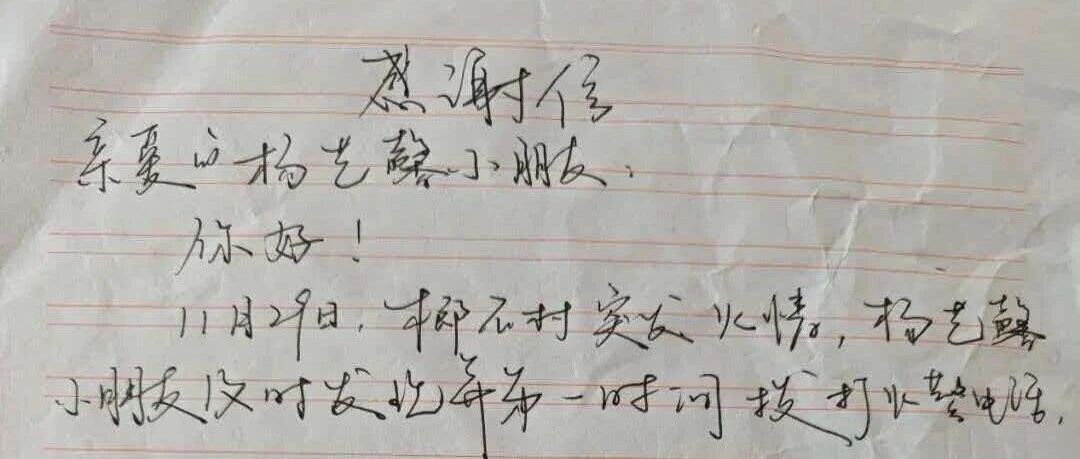 感谢信
亲爱的杨艺馨小朋友:
你好!
11月29日,榔石村突发火情,杨艺馨
小朋友及时发现并第一时间拨打火警电话,